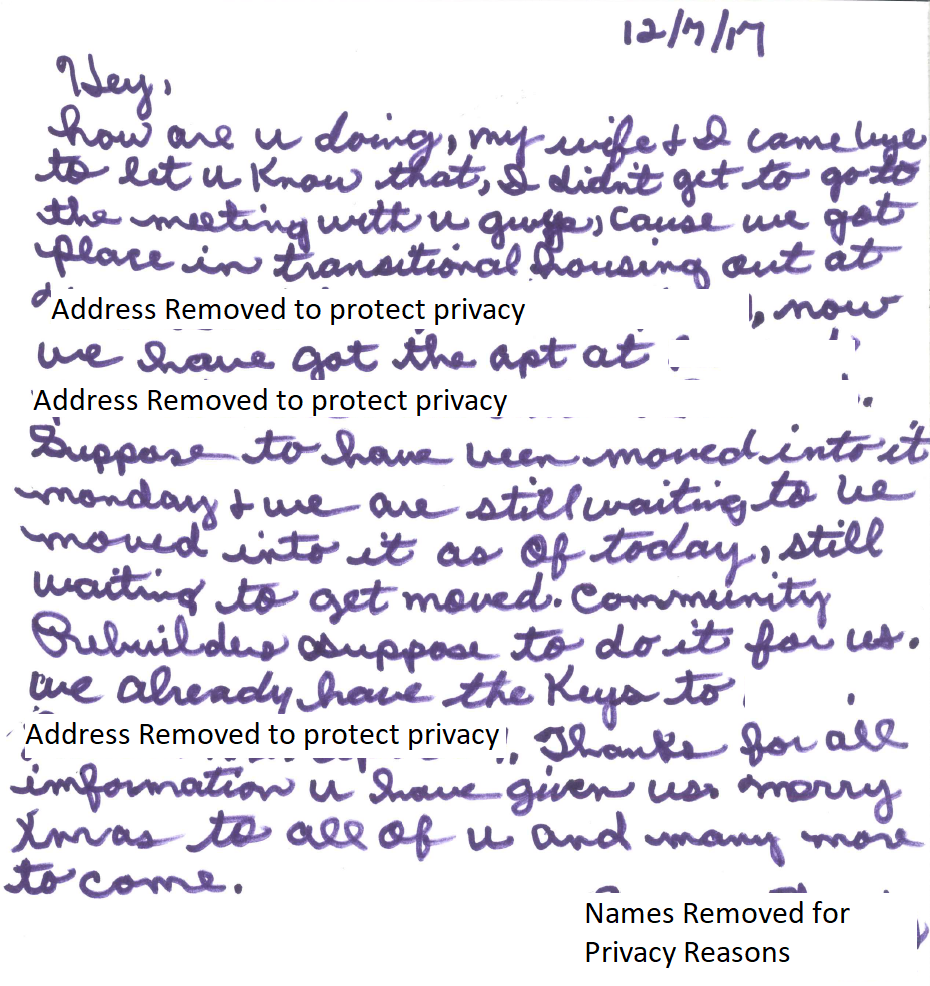 12/7/17
Hey,
how are u doing, my wife & I came bye
to let u Know that, I didn't get to go to
the meeting with u guys, cause we got
place in transitional housing out at
Address Removed to protect privacy , now
we have got the apt at
Address Removed to protect privacy .
Suppose to have been moved into it
monday & we are still waiting to be
moved into it as of today, still
waiting to get moved. Community
Rebuilders suppose to do it for us.
we already have the Keys to
Address Removed to protect privacy . Thanks for all
information u have given us. merry
Xmas to all of u and many more
to come.
Names Removed for
Privacy Reasons